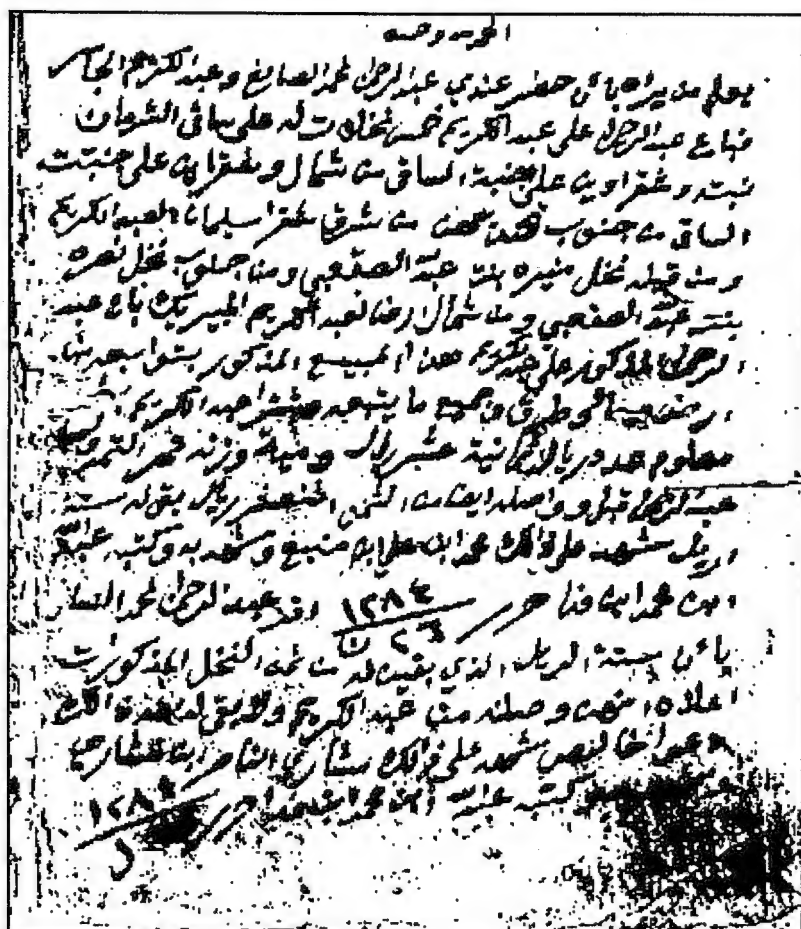 الحمد لله وحده
يعلم من يراه بأن حضر عندي عبدالرحمن لمحمد الصايغ وعبد الكريم الجاسر
فباع عبدالرحمن على عبد الكريم خمس نخلات له على ساقي الشرمان
نبته وشقراوين على جنبة الساقي من شمال وشقراوين على جنبت
الساقي من جنوب من شرق شقرا سليمان العبد الكريم
ومن قبله نخل منيره بنت عبدالله الصقعبي ومن جنوب نخل نصره
بنت عبدالله الصقعبي ومن شمال ارض لعبد الكريم المبيريك باع عبد
الرحمن المذكور على عبد الكريم هذا المبيع المذكور بتوابعه من
ارض وطرق وجميع ما يتبعه عبد الكريم
معلوم عدده ريال ثمانية عشر ريال ومية وزنه تمر التمر
عبدالرحمن قبل و واصله ايضا من الثمن اثنعشر ريال بقي له ستة
اريل شهد على ذلك محمد ابن علي ابن منيع وشهد به وكتبه عبدالله
ابن محمد ابن فدا حرر ١٢٨٤ اقر عبد الرحمن لمحمد
بأن ستة الاريل الذي بقين له من ثمن النخل المذكورت
اعلاه انهن وصلنه من عبد الكريم ولا بقي له
شهد على ذلك مشاري الناصر
كتبه عبدالله ابن محمد ابن فدا حرر ١٢٨٤